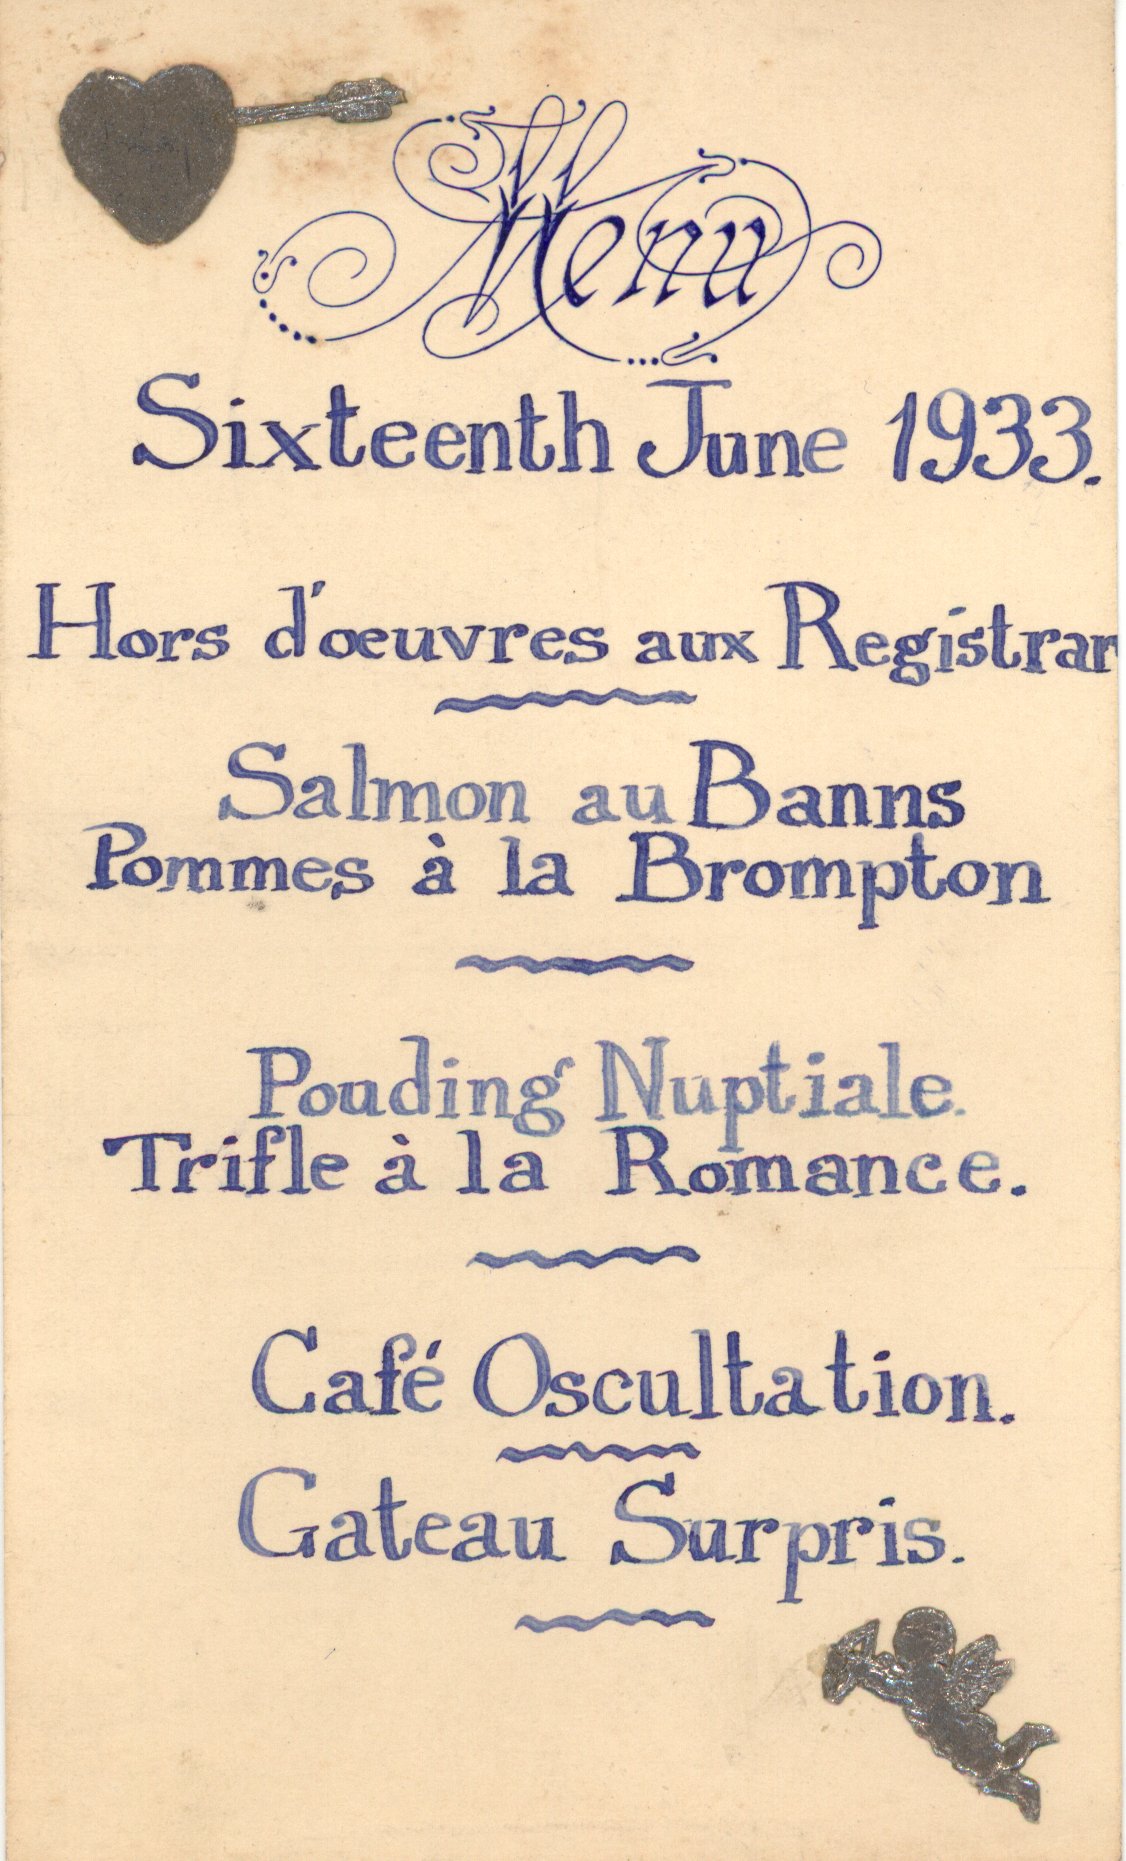 Menu
Sixteenth June 1933.
Hors d'œuvres aux Registrar
Salmon au Banns
Pommes à la Brompton
Pouding Nuptiale.
Trifle à la Romance.
Café Oscultation.
Gateau Surpris.